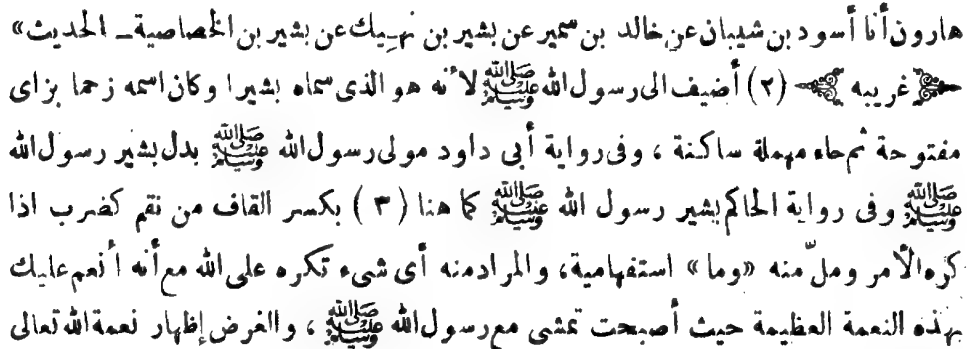 هارون أنا أسود بن شيبان عن خالد بن سمير عن بشير بن نهيك عن بشير بن الخصاصية ـ الحديث»
غريبه (٢) أضيف الى رسول الله ﷺ لأنه هو الذى سماه بشيرا وكان اسمه زحما بزاى
مفتوحة ثم حاء مهملة ساكنة ، وفى رواية أبى داود مولى رسول الله ﷺ بدل بشير رسول الله
ﷺ وفى رواية الحاكم بشير رسول الله ﷺ كما هنا (٣) بكسر القاف من نقم كضرب اذا
كره الأمر وملّ منه «وما» استفهامية، والمراد منه أى شىء تكره على الله مع أنه أنعم عليك
بهذه النعمة العظيمة حيث أصبحت تمشى مع رسول الله ﷺ ، والغرض إظهار نعمة الله تعالى